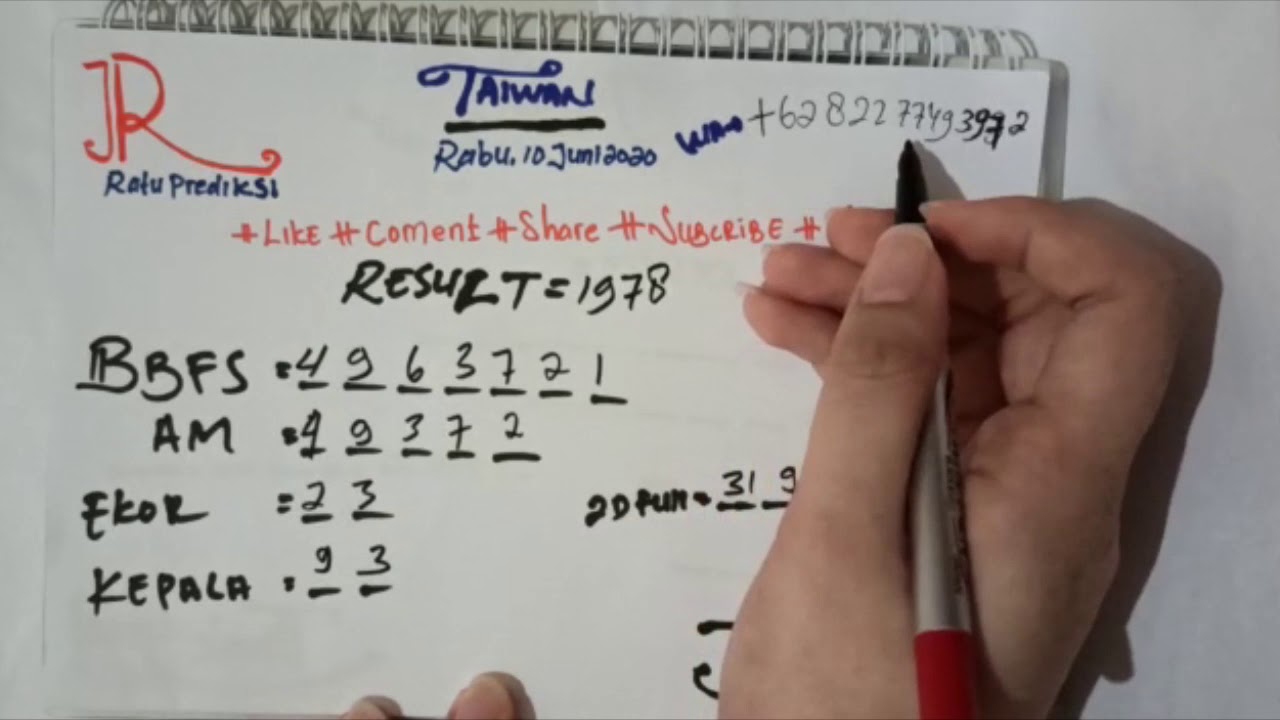 JR
Ratu Prediksi
TAIWAN
Rabu, 10 Juni 2020
WA
#LIKE # Coment # Share # SUBCRIBE #
RESULT = 1978
BBFS = 4 9 6 3 7 2 1
AM = 4 9 3 7 2
EKOR = 2 3
2D = 31 9
KEPALA = 9 3